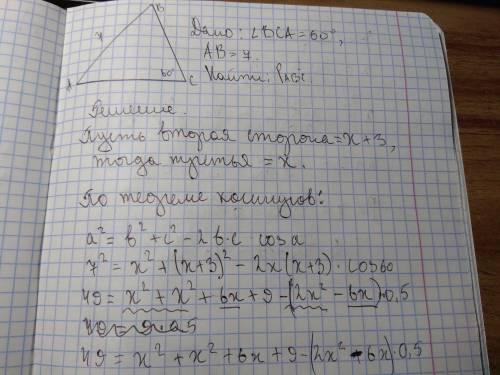 B
Дано: ∠BCA = 60°,
7
AB = 7
A
60°
C
Найти: P_ABC
Решение.
Пусть вторая сторона = x+3,
тогда третья = x.
По теореме косинусов:
a² = b² + c² - 2b·c cos a
7² = x² + (x+3)² - 2x(x+3)·cos60
49 = x² + x² + 6x + 9 - (2x² - 6x)·0,5
49 = x² + x² + 6x + 9 - (2x² - 6x)·0,5